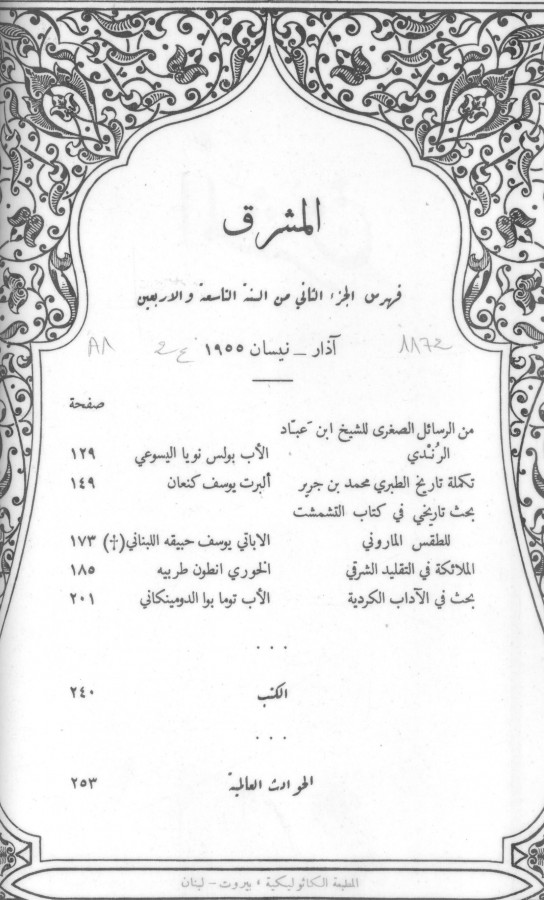 المشرق
فهرس الجزء الثاني من السنة التاسعة والاربعين
آذار – نيسان ١٩٥٥
صفحة
من الرسائل الصغرى للشيخ ابن عبّاد
الرُندي الأب بولس نويا اليسوعي ١٢٩
تكملة تاريخ الطبري محمد بن جرير ألبرت يوسف كنعان ١٤٩
بحث تاريخي في كتاب التشمشت
للطقس الماروني الاباتي يوسف حبيقه اللبناني (†) ١٧٣
الملائكة في التقليد الشرقي الخوري انطون طربيه ١٨٥
بحث في الآداب الكردية الأب توما بوا الدومينكاني ٢٠١
. . .
الكتب ٢٤٠
. . .
الحوادث العالمية ٢٥٣
المطبعة الكاثوليكية ، بيروت – لبنان